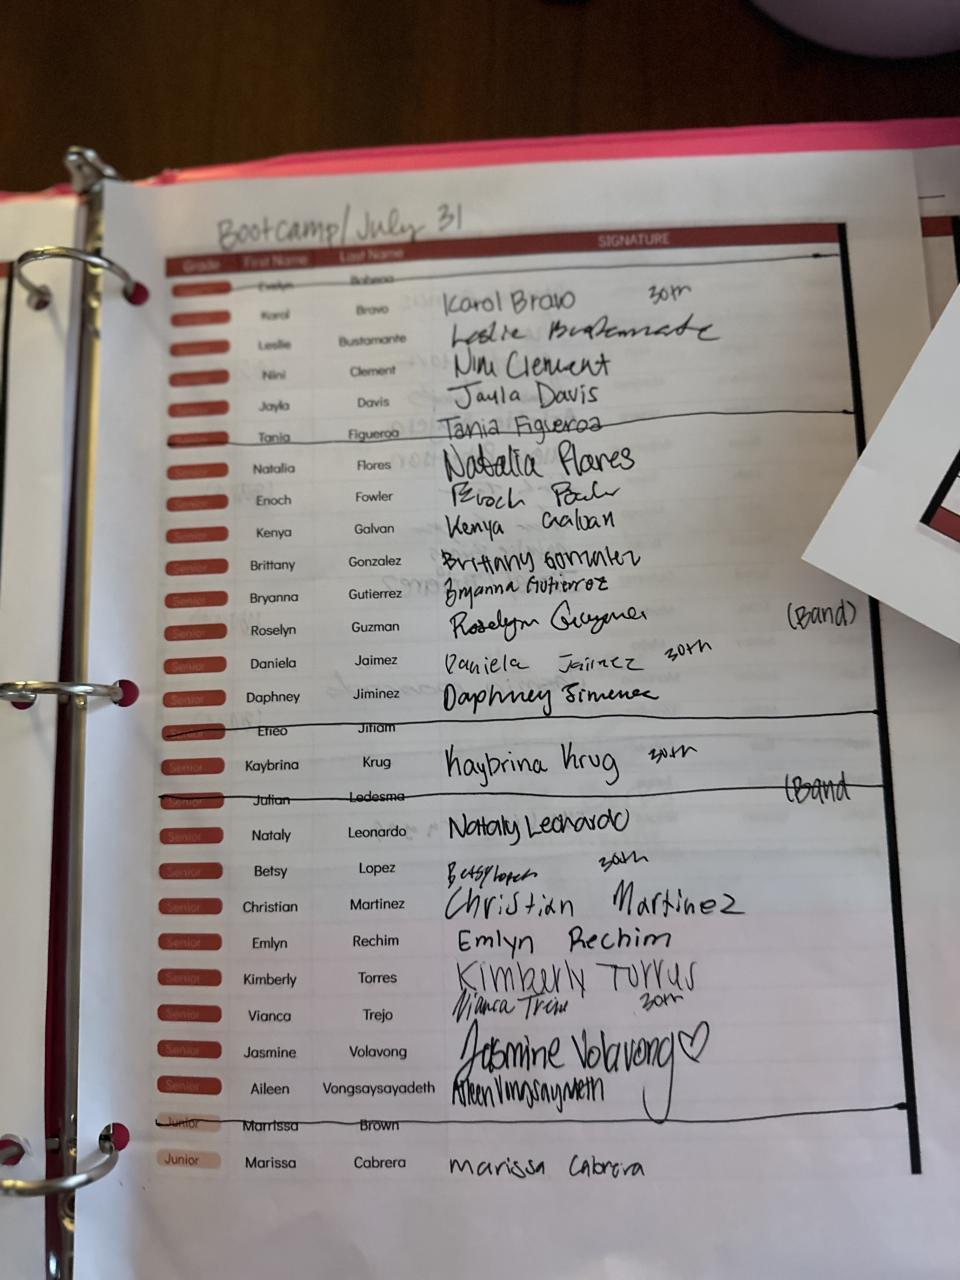 Bootcamp/July 31
Grade First Name Last Name SIGNATURE
Evelyn
Karol Bravo Karol Bravo 30th
Leslie Bustamante Leslie Bustamante
Nini Clement Nini Clement
Jayla Davis Jayla Davis
Tania Figueroa Tania Figueroa
Senior Natalia Flores Natalia Flores
Senior Enoch Fowler Enoch Fowler
Senior Kenya Galvan Kenya Galvan
Senior Brittany Gonzalez Brittany Gonzalez
Senior Bryanna Gutierrez Bryanna Gutierrez
Senior Roselyn Guzman Roselyn Guzman (Band)
Senior Daniela Jaimez Daniela Jaimez 30th
Senior Daphney Jiminez Daphney Jimenez
Senior Efieo Jitiam
Senior Kaybrina Krug Kaybrina Krug 30th
Senior Julian Ledesma (Band
Senior Nataly Leonardo Nataly Leonardo
Senior Betsy Lopez Betsy Lopez 30th
Senior Christian Martinez Christian Martinez
Senior Emlyn Rechim Emlyn Rechim
Senior Kimberly Torres Kimberly Torres
Senior Vianca Trejo Vianca Trejo 30th
Senior Jasmine Volavong Jasmine Volavong♡
Senior Aileen Vongsaysayadeth Aileen Vongsayadeth
Junior Marrissa Brown
Junior Marissa Cabrera Marissa Cabrera